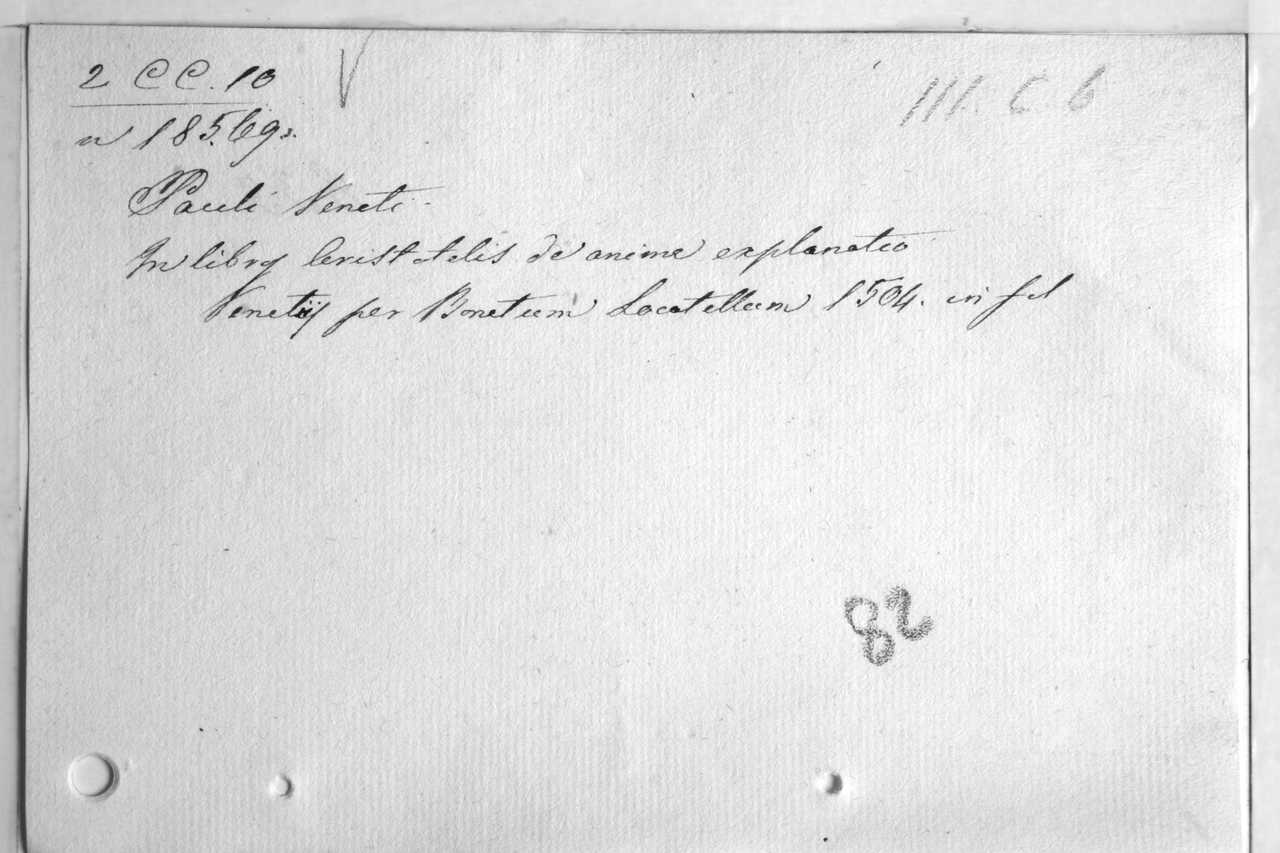 2 CC. 10
V
III. C 6
n 185.69.
Pauli Veneti
In libros Aristotelis de anima explanatio
Venetijs per Bonetum Locatellum 1504. in fol
82